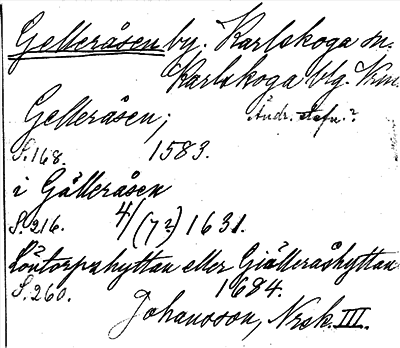 Gelleråsen by. Karlskoga sn.
Karlskoga blg. Vrm.
Gelleråsen; Ändr.
S. 168. 1583.
i Gälleråsen
S. 216. 4/(7?) 1631.
Löntorpahyttan eller Giälleråshyttan
S. 260. 1684.
Johansson, Nrsk. III.